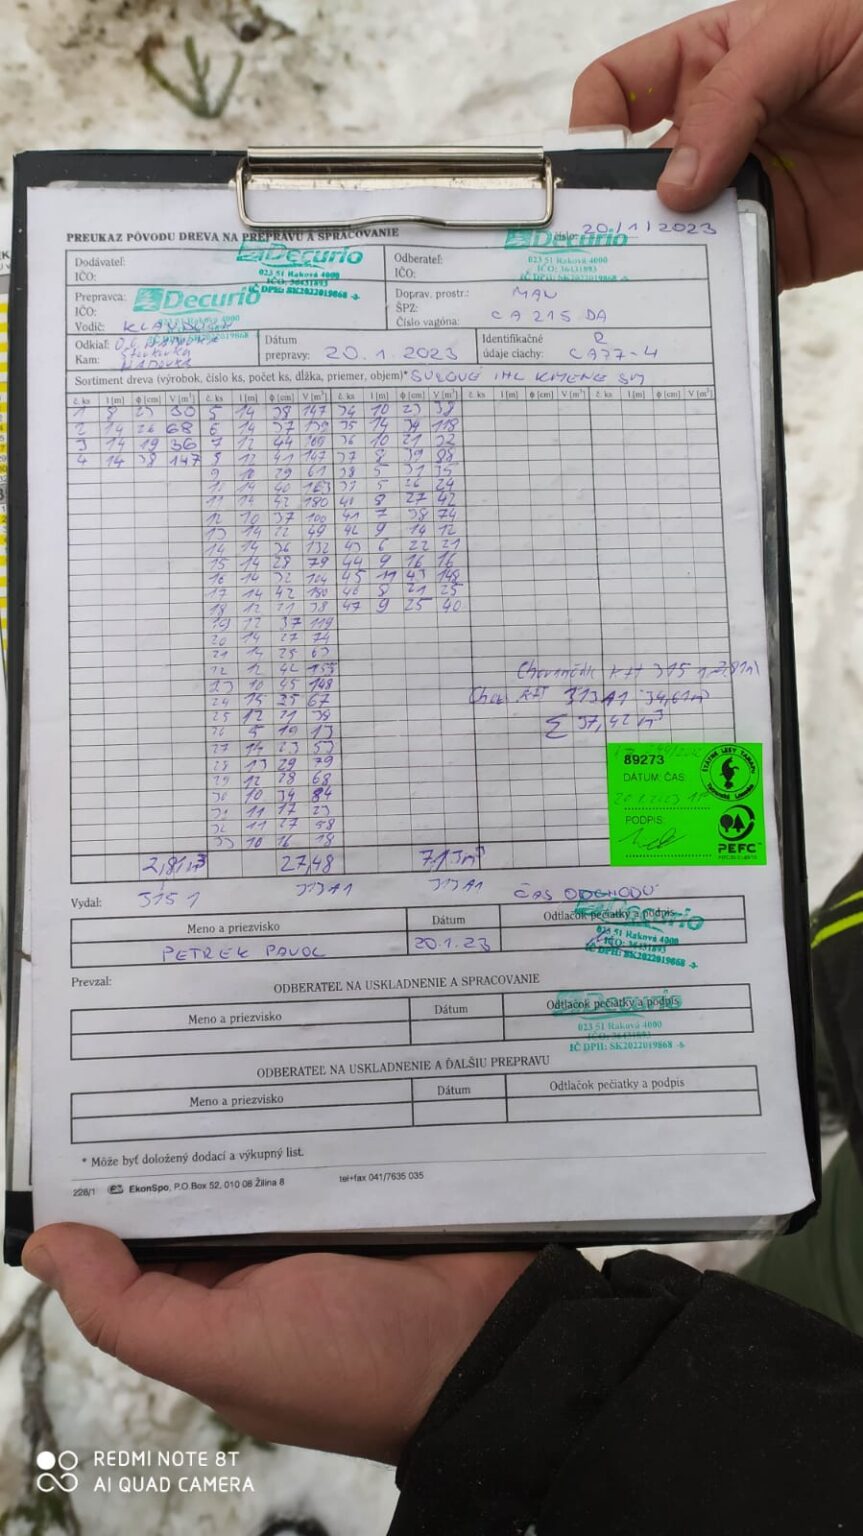 PREUKAZ PÔVODU DREVA NA PREPRAVU A SPRACOVANIE
číslo: 20/1/2023
Dodávateľ:
IČO:
Decurio
023 51 Raková 4000
IČO: 36431893
IČ DPH: SK2022019868 -3-
Odberateľ:
IČO:
Decurio
023 51 Raková 4000
IČO: 36431893
IČ DPH: SK2022019868
Prepravca:
IČO:
Vodič:
Decurio
Doprav. prostr.: MAN
ŠPZ:
Číslo vagóna: CA 215 DA
Odkiaľ:
Kam:
Dátum
prepravy: 20.1.2023
Identifikačné
údaje ciachy: CA77-4
Sortiment dreva (výrobok, číslo ks, počet ks, dĺžka, priemer, objem)* SUROVÉ IHL KMENE SM
č. ks l [m] ϕ [cm] V [m³] č. ks l [m] ϕ [cm] V [m³] č. ks l [m] ϕ [cm] V [m³] č. ks l [m] ϕ [cm] V [m³] č. ks l [m] ϕ [cm] V [m³]
1 8 23 30 5 14 38 147 34 10 23 38
2 14 26 68 6 14 37 35 14 34 118
3 14 19 36 7 12 44 36 10 21 32
4 14 38 147 8 12 41 147 37 8 39 88
9 10 29 61 38 5 31 35
14 40 163 5 26 24
11 14 42 180 40 8 27 42
12 10 37 100 41 7 38 74
13 14 22 49 42 9 14 12
14 14 36 132 43 6 22 21
15 14 28 79 44 9 16 16
16 14 32 104 45 11 43 148
17 14 42 180 46 8 21 25
18 12 21 38 47 9 25 40
19 12 37 119
20 14 27 74
21 14 25 63
22 12 42 155
23 10 45 148
24 15 25 67
25 12 21 38
26 5 19 13
27 14 23 53
28 13 29 79
29 12 28 68
30 10 34 84
31 11 17 23
32 11 27 58
33 10 16 18
315 1 2,81m³
313A1 34,61m³
Σ 37,42 m³
89273
DÁTUM: ČAS:
PODPIS:
ŠTÁTNE LESY TANAPU
Tatranská Lomnica
PEFC
2,81m³ 27,48 7,13m³
315 1 313A1 313A1
ČAS ODCHODU
Vydal:
Meno a priezvisko Dátum Odtlačok pečiatky a podpis
PETREK PAVOL 20.1.23
Decurio
023 51 Raková 4000
IČO: 36431893
IČ DPH: SK2022019868 -3-
Prevzal:
ODBERATEĽ NA USKLADNENIE A SPRACOVANIE
Meno a priezvisko Dátum Odtlačok pečiatky a podpis
Decurio
023 51 Raková 4000
IČO: 36431893
IČ DPH: SK2022019868
ODBERATEĽ NA USKLADNENIE A ĎALŠIU PREPRAVU
Meno a priezvisko Dátum Odtlačok pečiatky a podpis
* Môže byť doložený dodací a výkupný list.
228/1 EkonSpo, P.O.Box 52, 010 08 Žilina 8 tel+fax 041/7635 035
REDMI NOTE 8T
AI QUAD CAMERA